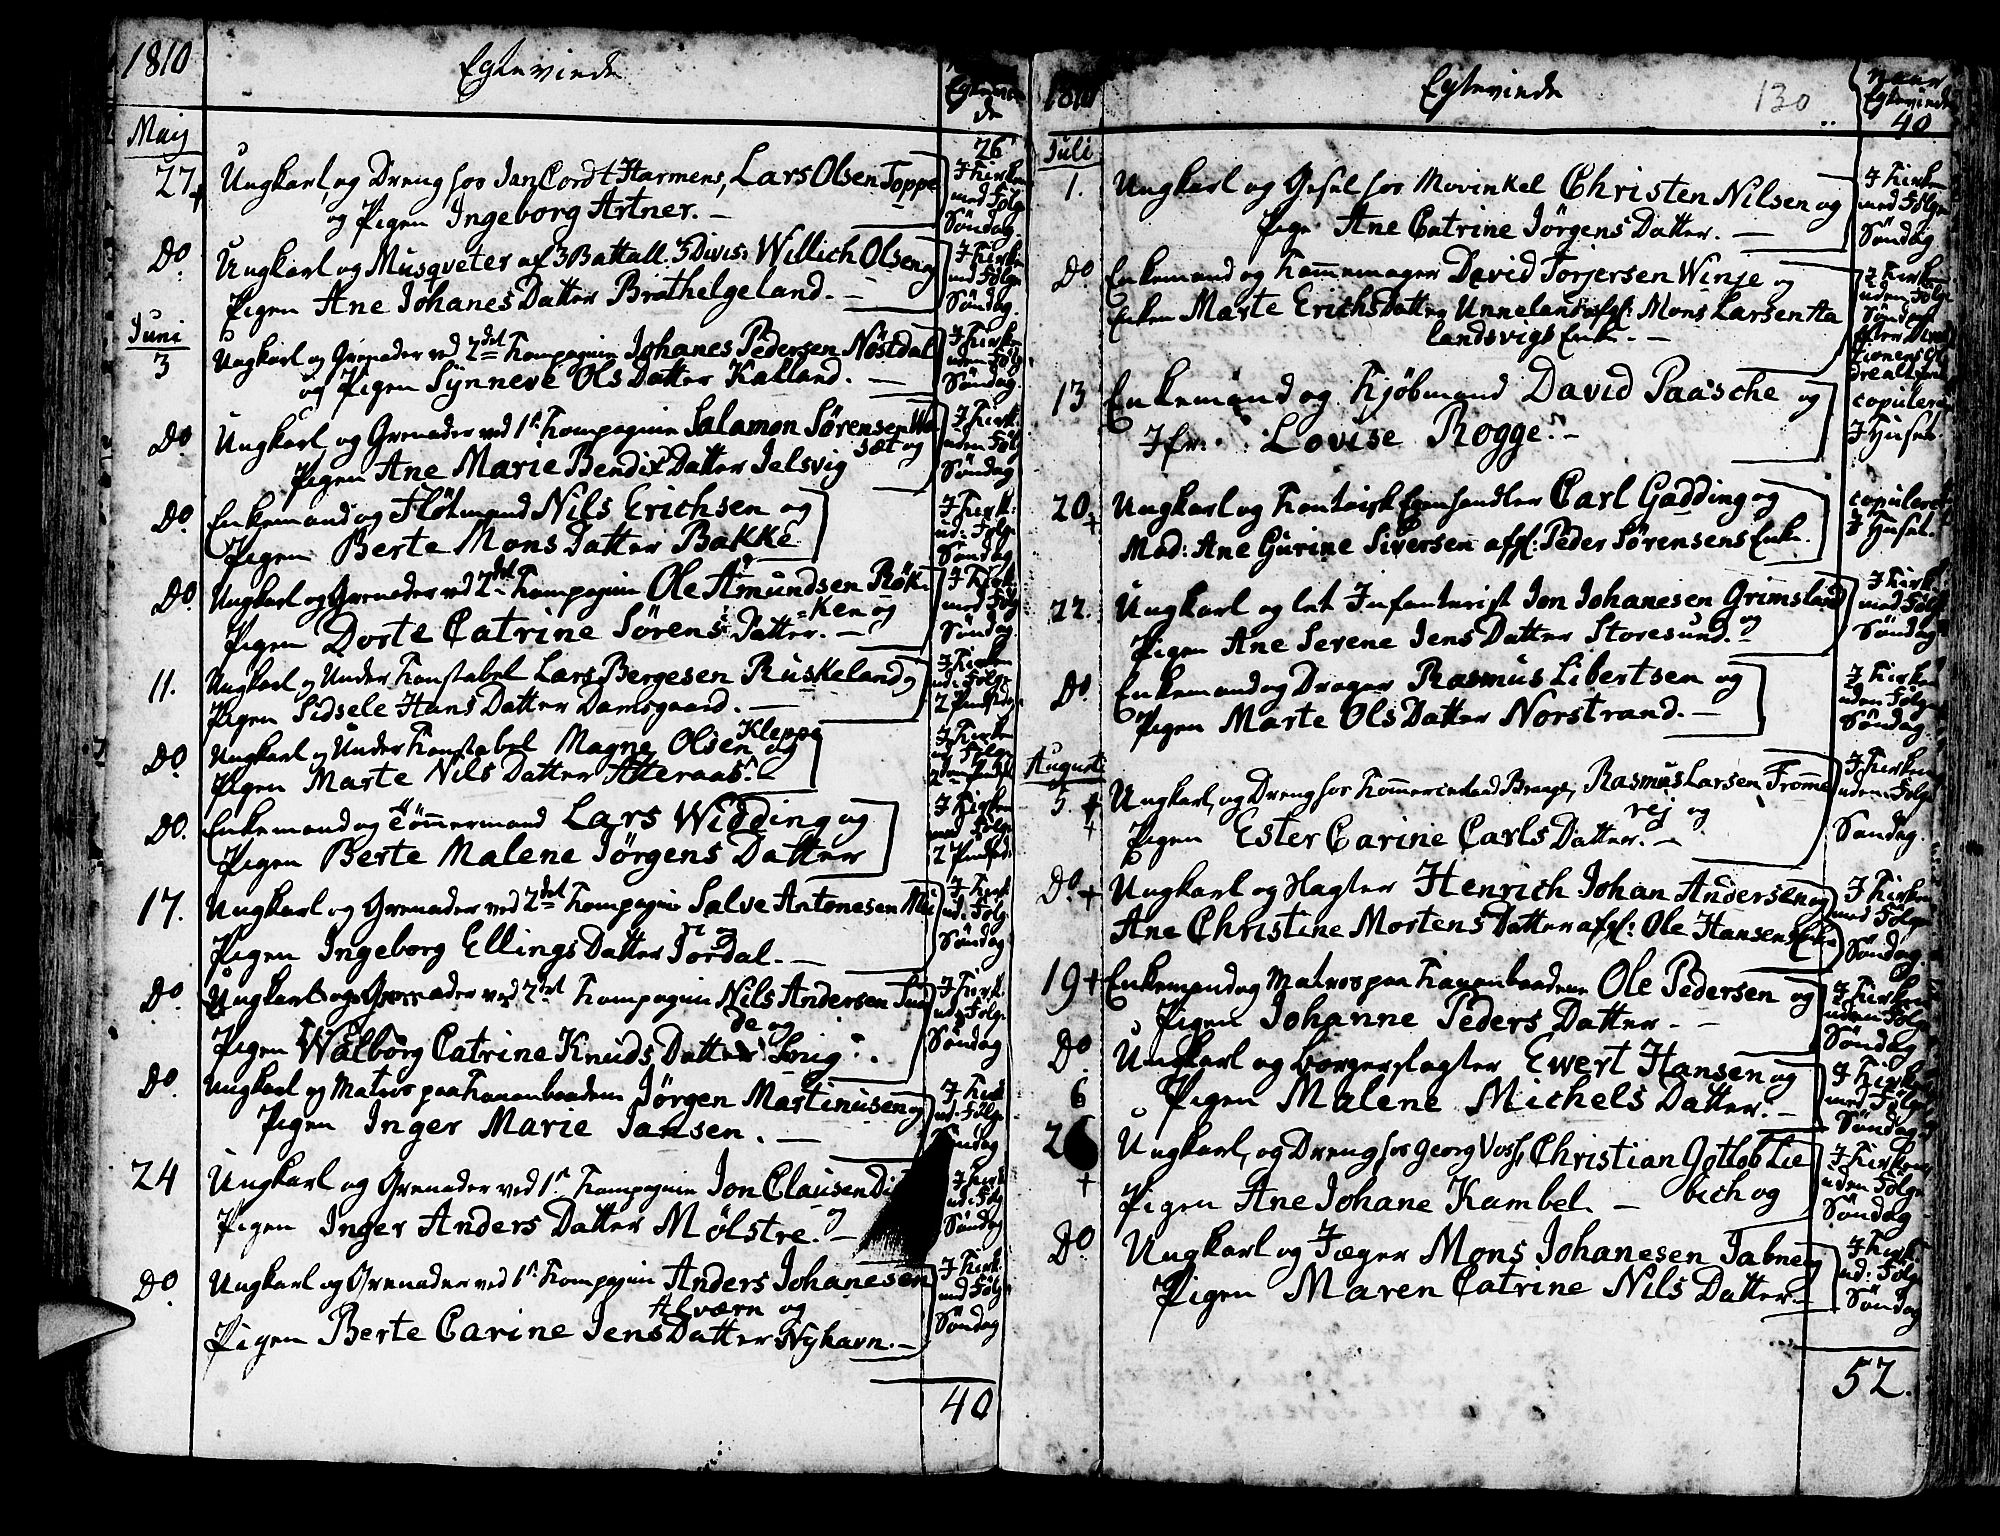 1810
Egteviede
Egtevie
de
26
Maij
27 Ungkarl, og Dreng hos Jan Cordt Harmens, Lars Olsen Toppe
og Pigen Ingeborg Artner. —
I Kirken
med Følge
Søndag.
Do Ungkarl og Musqveter af 3 Battall. 3 Divis: Willich Olsen og
Pigen Ane Johanes Datter Brathelgeland. —
I Kirken
med Følge
Søndag.
Juni
3 Ungkarl og Grenader ved 2det Kompagnie Johanes Pedersen Nöstdal
og Pigen Synneve Ols Datter Kalland. —
I Kirken
uden Følg
Søndag.
Do Ungkarl og Grenader ved 1st Kompagnie Salamon Sörensen Wo
sæt og
Pigen Ane Marie Bendix Datter Jelsvig
I Kirk:
uden Föl
Søndag
Do Enkemand og Flötmand Nils Erichsen og
Pigen Berte Mons Datter Bakke
I Kirk:
ud: Følge
Søndag
Do Ungkarl og Grenader ved 2det Kompagnie Ole Amundsen Rök-
=ken og
Pigen Dorte Catrine Sörens Datter. —
I Kirk:
med Følg
Søndag.
11. Ungkarl og Under Konstabel Lars Bergesen Ruskeland og
Pigen Sidsele Hans Datter Damsgaard. —
I Kirken
ud: Følge
2 Pindsedag
Do Ungkarl og Under Konstabel Magne Olsen Kleppe
og
Pigen Marte Nils Datter Atteraas.
I Kirken
ud: Følge
Do. Enkemand og Tömmermand Lars Widding og
Pigen Berte Malene Jörgens Datter
I Kirken
med Følge
2 Pindsed:
17. Ungkarl og Grenader ved 2det Kompagnie Salve Antonesen
Pigen Ingeborg Ellings Datter Jordal. —
I Kirk
ud: Følg.
Søndag
Do Ungkarl og Grenader ved 2det Kompagnie Nils Andersen
de og
Pigen Walborg Catrine Knuds Datter
I Kirk:
ud: Følge
Søndag
Do Ungkarl og Matros paa Kanonbaadene Jörgen Martinusen og
Pigen Inger Marie Jansen. —
I Kirk
ud: Følge
Søndag
24 Ungkarl og Grenader ved 1st Kompagnie Jon Clausen
Pigen Inger Anders Datter Mölstre. —
I Kirk
ud: Følg
Søndag
Do. Ungkarl og Grenader ved 1st Kompagnie Anders Johanesen
Alværn og
Pigen Berte Carine Jens Datter Nyhavn. —
I Kirk.
ud Følg
Søndag
40
1810
Egteviede
130
naar
Egteviede
40
Juli
1. Ungkarl og Gesel hos Movinkel Christen Nilsen og
Pige Ane Catrine Jörgens Datter. —
I Kirken
med Følge
Søndag
Do Enkemand og Kammemager David Torjersen Winje og
Enken Marte Erichs Datter Unneland afgl: Mons Larsen Aa
landsvigs Enke. —
I Kirken
uden Følge
Søndag
efter
13 Enkemand og Kjöbmand David Paasche og
Jfr: Lovise Rogge. —
copuleret
I Huset.
20 Ungkarl og Kontoirsk Eenhandler Carl Gadding og
Mad: Ane Gurine Siversen afgl: Peder Sörensens Enke.
copuleret
I Huset.
22. Ungkarl og let Infanterist Jon Johanesen Grimsland
og
Pigen Ane Serene Jens Datter Storesund.
I Kirk:
med Følge
Søndag
Do Enkemand og Drager Rasmus Libertsen og
Pigen Marte Ols Datter Norstrand. —
I Kirken
uden Følge
Søndag
August
5. Ungkarl, og Dreng hos Rasmus Larsen Fromme
rej og
Pigen Ester Carine Carls Datter. —
I Kirken
uden Følge
Søndag.
Do. Ungkarl og Slagter Henrich Johan Andersen og
Ane Christine Mortens Datter afgl: Ole Hansens Enke
I Kirken
med Følge
Søndag
19 Enkemand og Matros paa Kanonbaadene Ole Pedersen og
Pigen Johanne Peders Datter. —
I Kirken
uden Følge
Søndag
Do. Ungkarl og borgerslagter Ewert Hansen og
Pigen Malene Michels Datter. —
I Kirken
med Følge
Søndag
6
26 Ungkarl, og Dreng hos Georg Voss, Christian Gotlob Lie
bich og
Pigen Ane Johane Kambel. —
I Kirken
uden Følge
Søndag
Do. Ungkarl og Jæger Mons Johanesen Jabne og
Pigen Maren Catrine Nils Datter. —
I Kirk:
ud: Følge
Søndag
52.